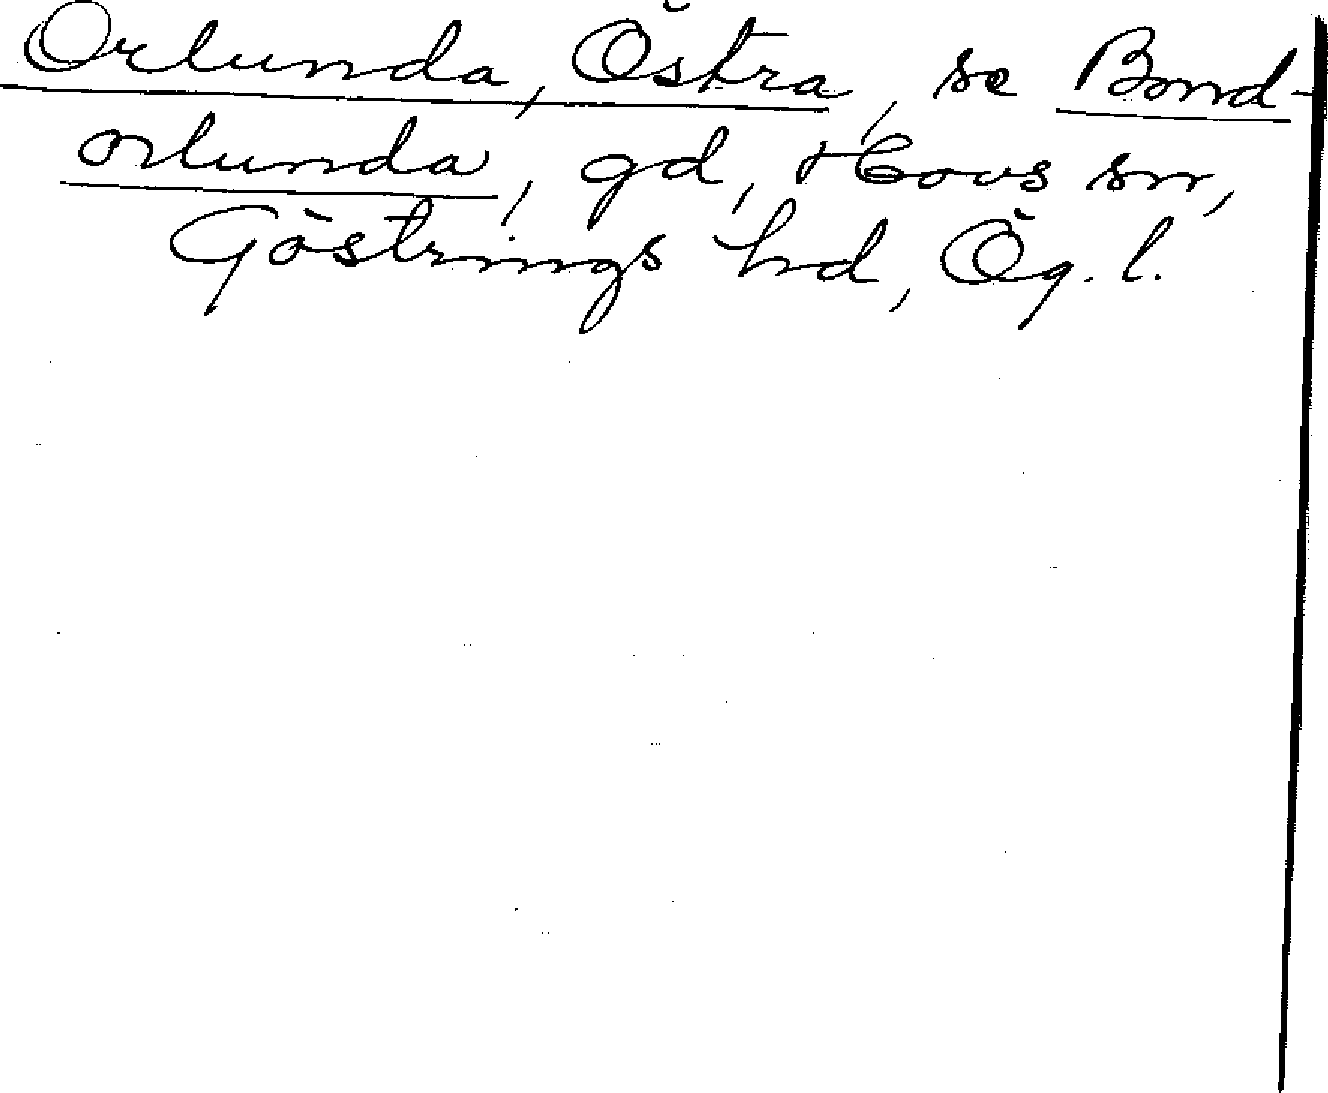 Orlunda, Östra, se Bond-
orlunda, gd, Hovs sn,
Göstrings hd, Ög. l.